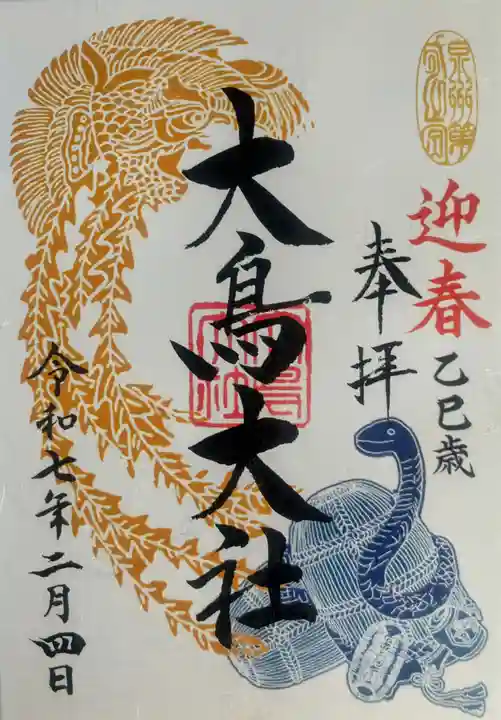 迎春
乙巳歳
奉拝
大鳥大社
令和七年二月四日